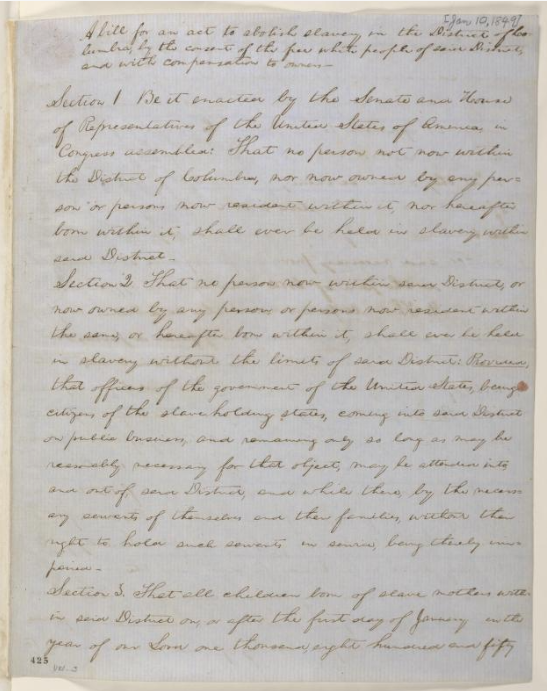 [Jan 10, 1849]
A bill for an act to abolish slavery in the District of Co-
lumbia, by the consent of the free white people of said District,
and with compensation to owners—
Section 1 Be it enacted by the Senate and House
of Representatives of the United States of America, in
Congress assembled: That no person not now within
the District of Columbia, nor now owned by any per-
son or persons now resident within it, nor hereafter
born within it, shall ever be held in slavery within
said District—
Section 2. That no person now within said District, or
now owned by any person, or persons now resident within
the same, or hereafter born within it, shall ever be held
in slavery without the limits of said District: Provided,
that officers of the government of the United States, being
citizens of the slave-holding states, coming into said District
on public business, and remaining only so long as may be
reasonably necessary for that object, may be attended into,
and out of, said District, and while there, by the necess-
ary servants of themselves and their families, without their
right to hold such servants in service, being thereby im-
paired—
Section 3. That all children born of slave mothers with-
in said District on, or after the first day of January in the
year of our Lord one thousand, eight hundred and fifty
425